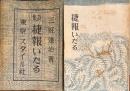 三好達治著
捷報いたる
東京 スタイル社
捷報いたる